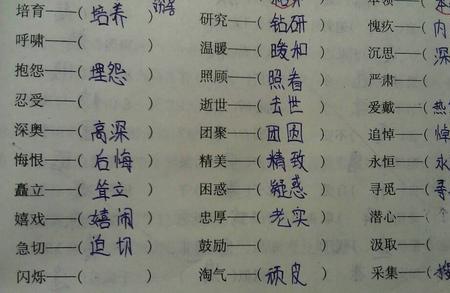 培育——(培养) 研究——(钻研) 愧疚——(内
呼啸——( ) 温暖——(暖和) 沉思——(深
抱怨——(埋怨) 照顾——(照看) 严肃——(
忍受——( ) 逝世——(去世) 爱戴——(热
深奥——(高深) 团聚——(团圆) 追悼——(悼
悔恨——(后悔) 精美——(精致) 永恒——(永
矗立——(耸立) 困惑——(疑惑) 寻觅——(寻
嬉戏——(嬉闹) 忠厚——(老实) 潜心——(
急切——(迫切) 鼓励——( ) 汲取——(
闪烁——( ) 淘气——(顽皮) 采集——(